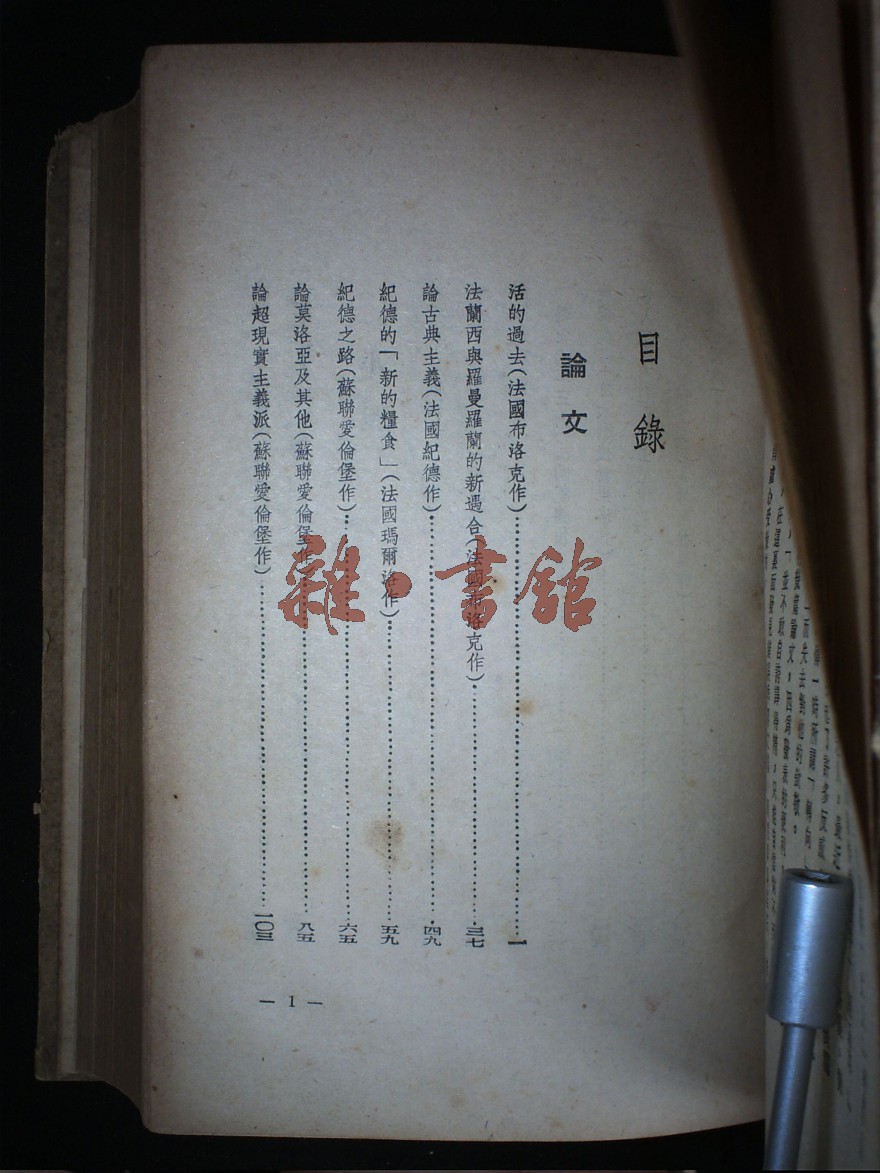 目錄
論文
活的過去(法國布洛克作)……一
法蘭西與羅曼羅蘭的新遇合(法國布洛克作)……三七
論古典主義(法國紀德作)……四九
紀德的「新的糧食」(法國瑪爾洛作)……五九
紀德之路(蘇聯愛倫堡作)……六五
論莫洛亞及其他(蘇聯愛倫堡作)……八五
論超現實主義派(蘇聯愛倫堡作)……一〇三
— 1 —
雜·書館